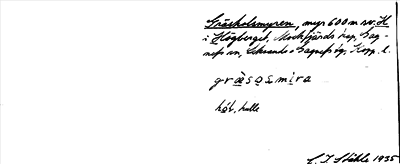 Gräsholsmyren, myr 600 m sv. H
i Högberget, Mockfjärds kap, Gag-
nefs sn, Leksands o Gagnefs tg, Kopp. l.
gräsosmira
hól, kulle
C. I. Ståhle 1935